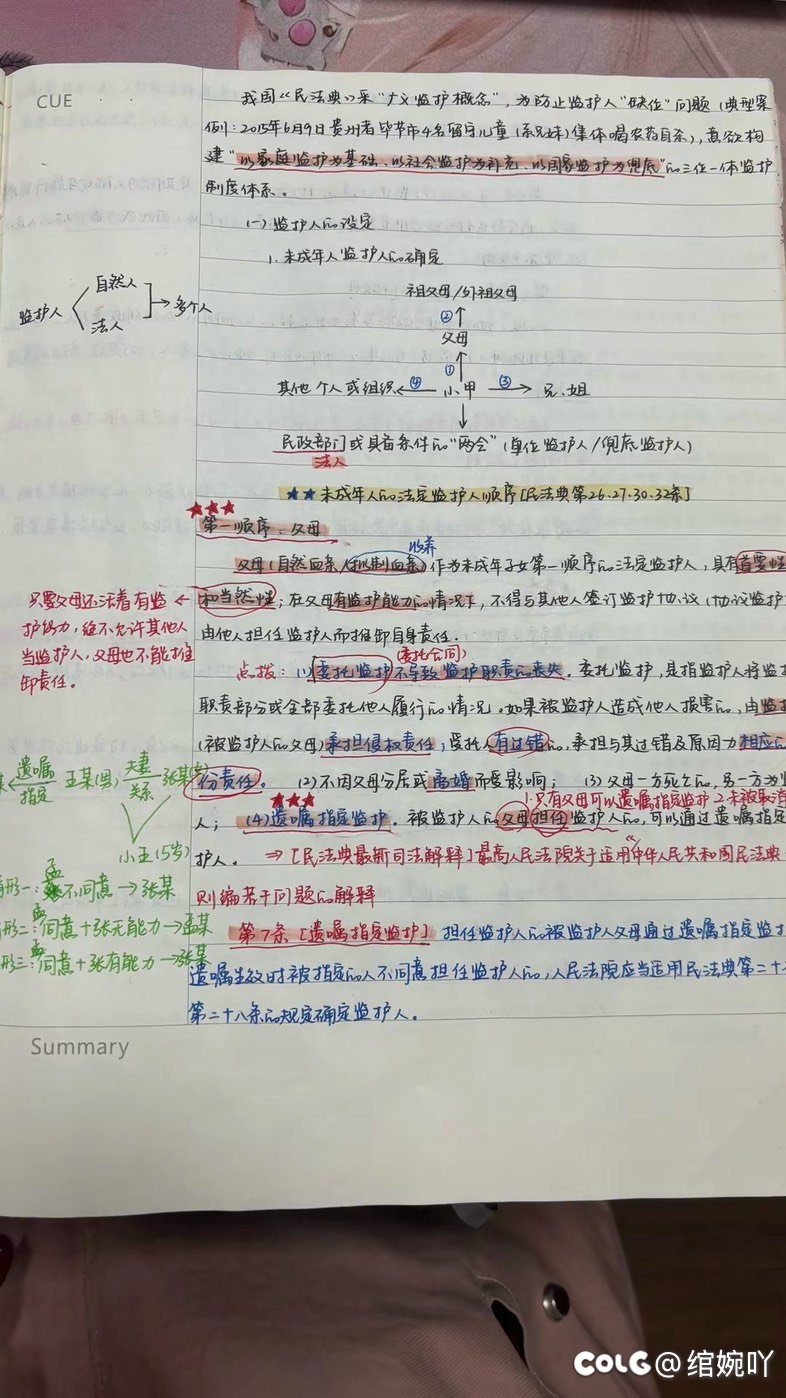 CUE
我国《民法典》采"广义监护概念",为防止监护人"缺位"问题(典型案
例:2015年6月9日贵州省毕节市4名留守儿童(系兄妹)集体喝农药自杀),意欲构
建"以家庭监护为基础、以社会监护为补充、以国家监护为兜底"的三位一体监护
制度体系。
(一)监护人的设定
1.未成年人监护人的确定
监护人
自然人
法人
多个人
祖父母/外祖父母
②
父母
①
其他个人或组织 ④ 小甲 ③ 兄、姐
民政部门或具备条件的"两会"(单位监护人/兜底监护人)
法人
★★未成年人的法定监护人顺序[民法典第26.27.30.32条]
★★★
第一顺序:父母
收养
父母(自然血亲/拟制血亲)作为未成年子女第一顺序的法定监护人,具有首要性
和当然性;在父母有监护能力的情况下,不得与其他人签订监护协议(协议监护
由他人担任监护人而推卸自身责任。
只要父母还活着有监
护能力,绝不允许其他人
当监护人,父母也不能推
卸责任。
(委托合同)
点拨:(1)委托监护不导致监护职责的丧失。委托监护,是指监护人将监
职责部分或全部委托他人履行的情况。如果被监护人造成他人损害的,由监
(被监护人的父母)承担侵权责任;受托人有过错的,承担与其过错及原因力相应的
份责任。(2)不因父母分居或离婚而受影响;(3)父母一方死亡的,另一方为
★★★
1.只有父母可以遗嘱指定监护 2.未被取消
人;(4)遗嘱指定监护。被监护人的父母担任监护人的,可以通过遗嘱指定
护人。⇒[民法典最新司法解释]最高人民法院关于适用《中华人民共和国民法典
则编若干问题的解释
第7条[遗嘱指定监护] 担任监护人的被监护人父母通过遗嘱指定监
遗嘱生效时被指定的人不同意担任监护人的,人民法院应当适用民法典第二十
第二十八条的规定确定监护人。
某 遗嘱指定 王某(男) 夫妻关系 张某(女)
小王(5岁)
形一:孟不同意→张某
形二:孟同意+张无能力→孟某
形三:孟同意+张有能力→张某
Summary
COLG@绾婉吖